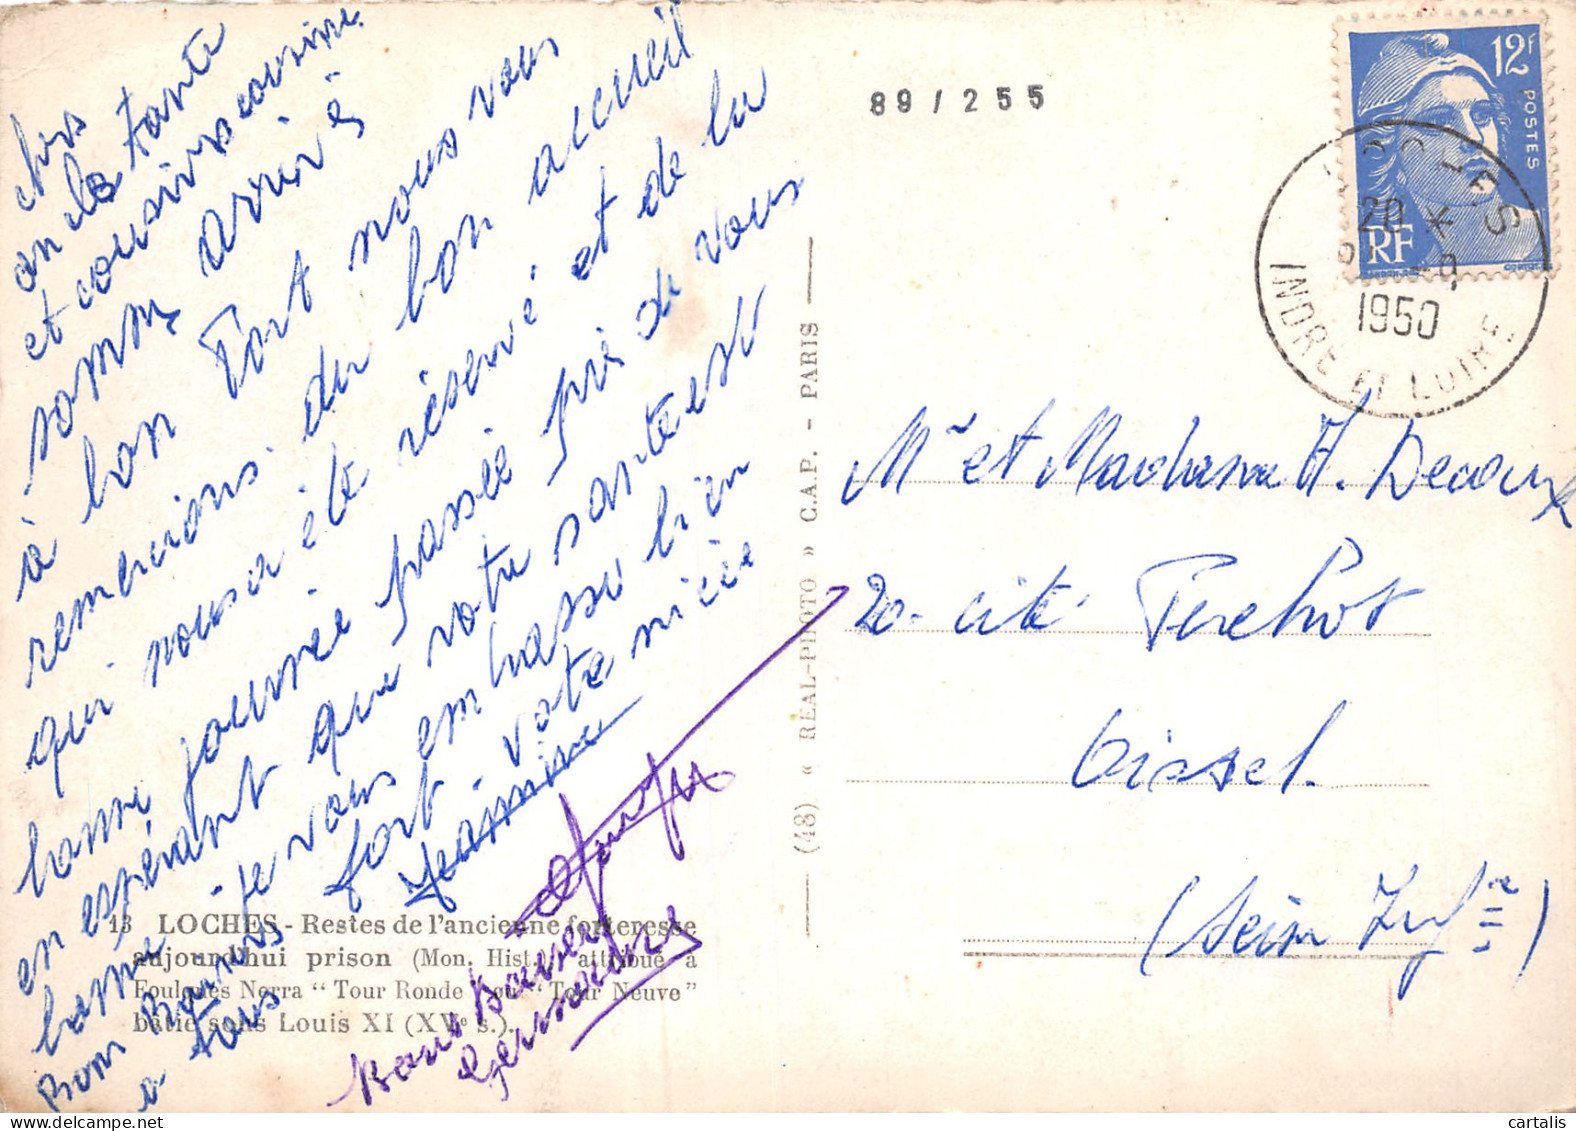 chers
oncle tante
et cousins cousine
somm arrivé
à bon Port nous vous
remercions. du bon accueil
qui nous a été réservé et de la
bonne journée passée près de vous
en espérant que votre santé est
bonne je vous embrasse bien
fort. votre nièce
Jeannine
Bons Baisers
a tous
Bons Baisers
Germaine
13 LOCHES - Restes de l'ancienne forteresse
aujourd'hui prison (Mon. Hist.) attribué à
Foulques Nerra “ Tour Ronde ” ou “ Tour Neuve ”
bâtie sous Louis XI (XVe s.).
(48) « REAL-PHOTO » C.A.P. - PARIS
89/255
12F
POSTES
RF
20 *
1950
INDRE ET LOIRE
Mr et Madame A. Decaux
20 - cité
Oissel.
(Seine Infre)
cartalis - delcampe.net